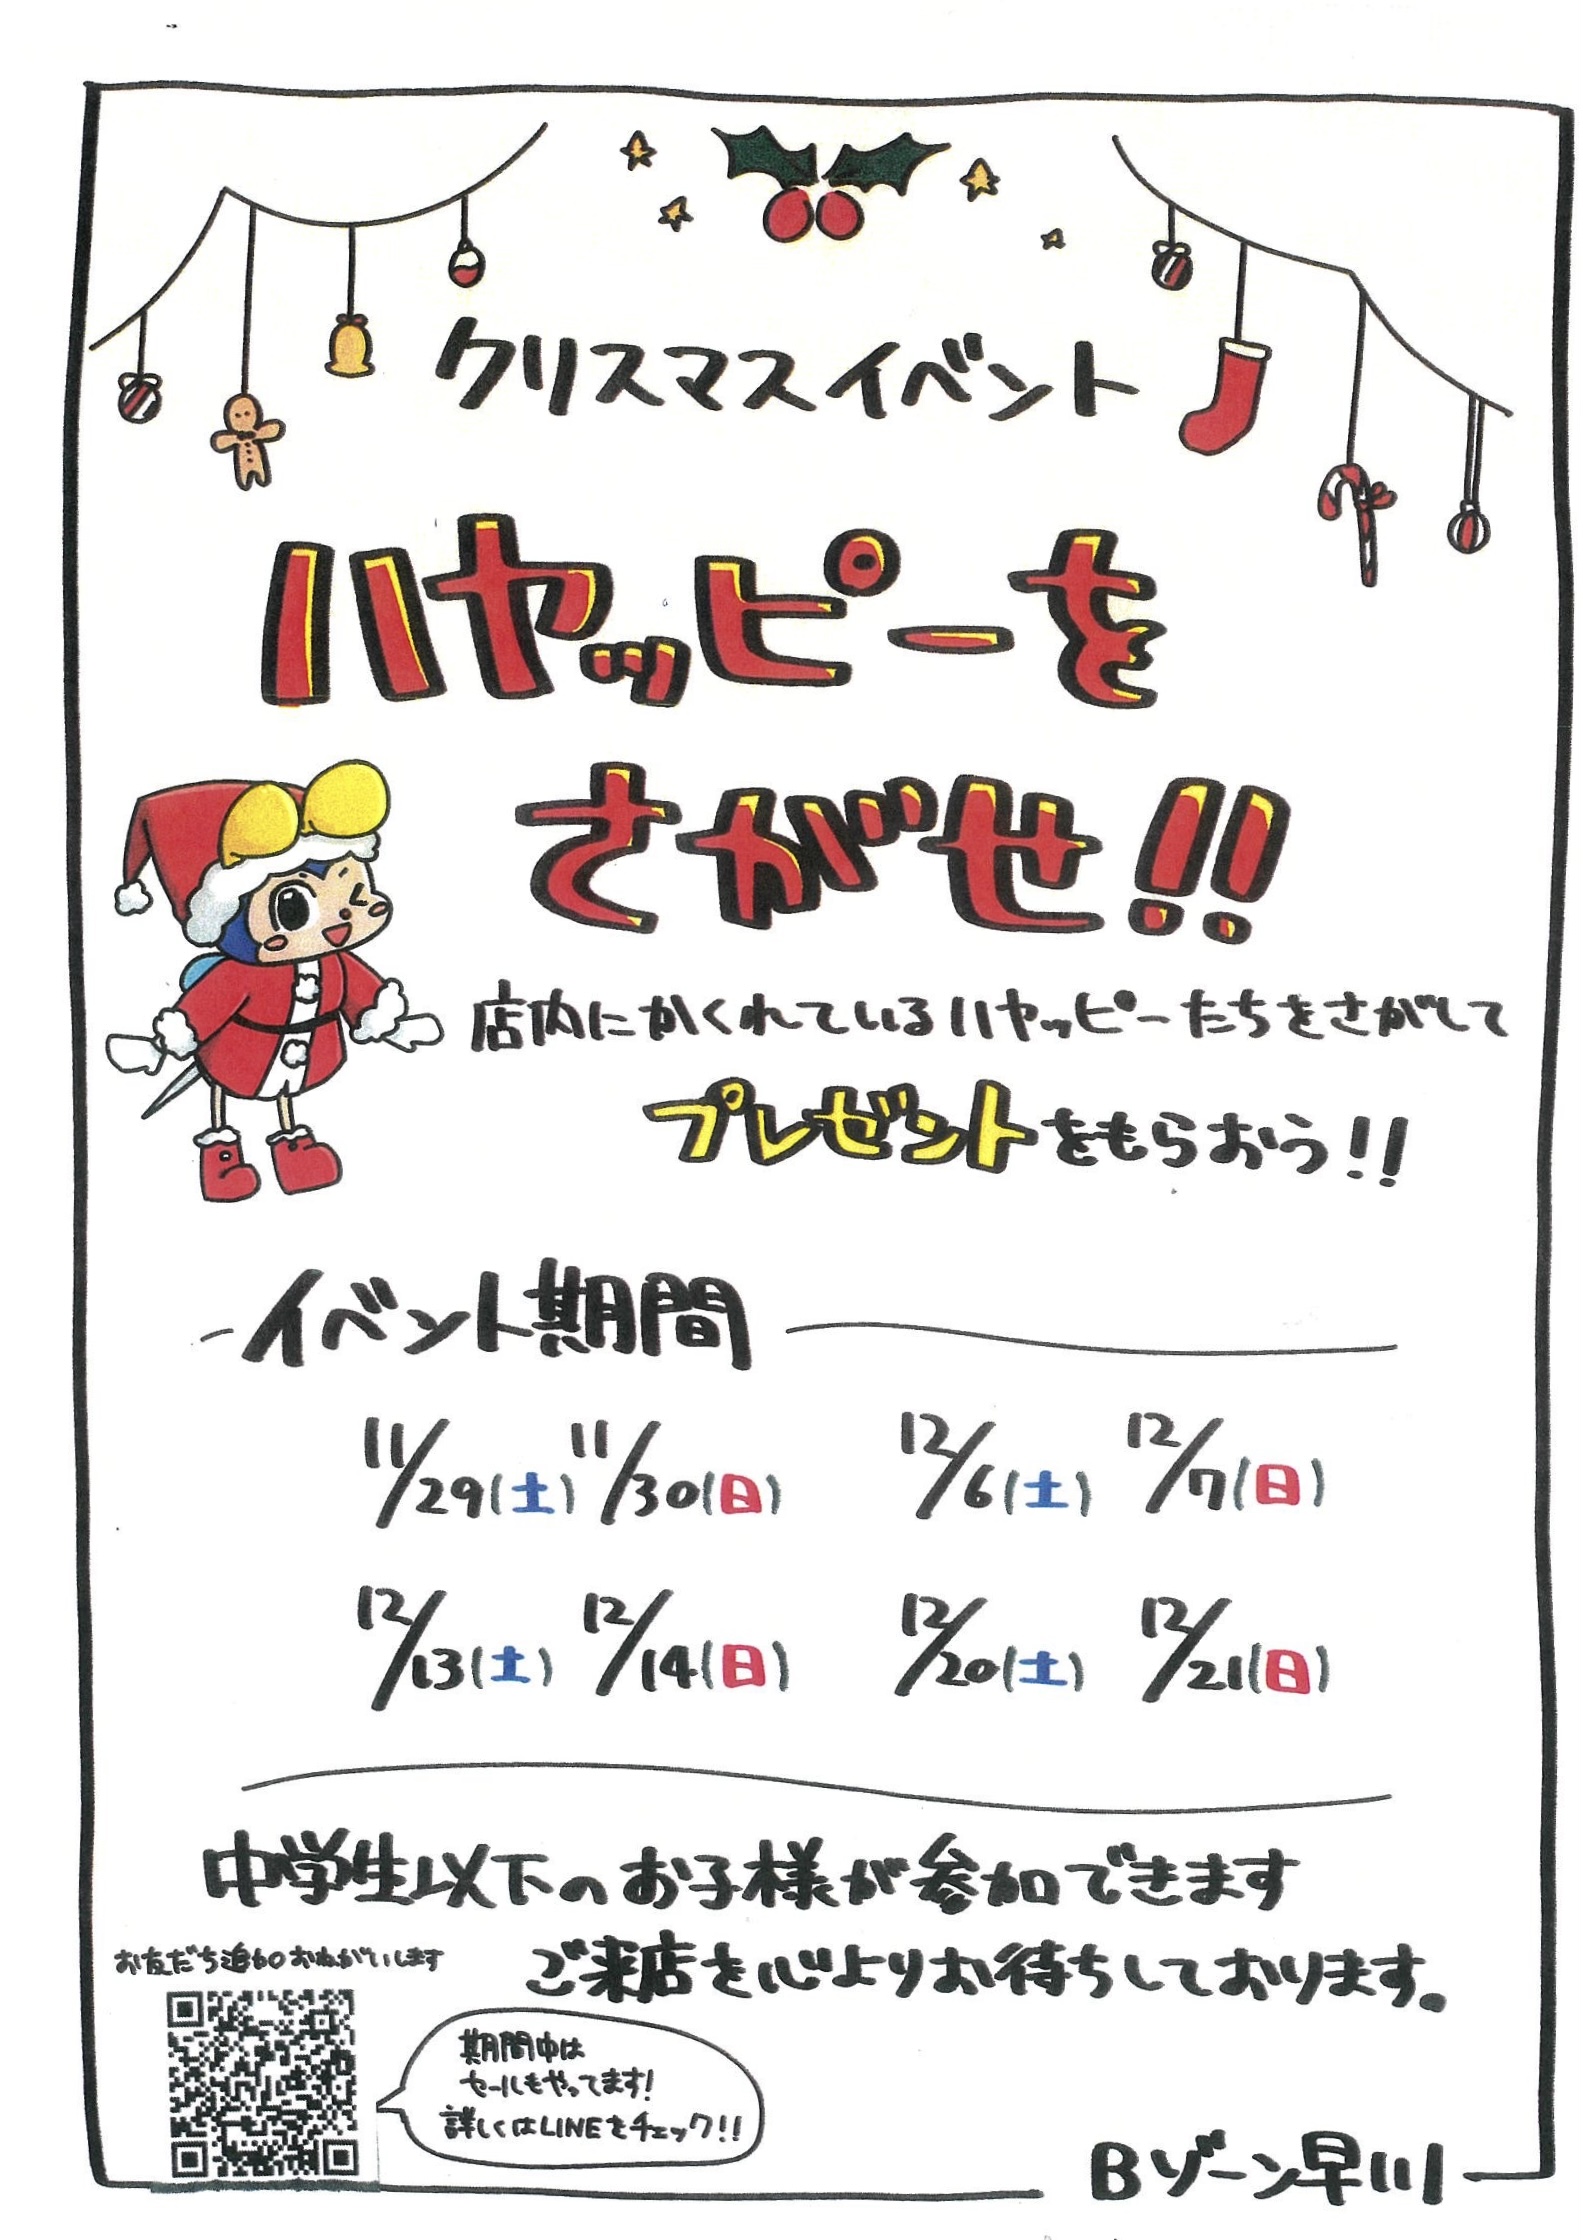 クリスマスイベント
ハヤッピーを
さがせ!!
店内にかくれているハヤッピーたちをさがして
プレゼントをもらおう!!
イベント期間
11/29(土) 11/30(日) 12/6(土) 12/7(日)
12/13(土) 12/14(日) 12/20(土) 12/21(日)
中学生以下のお子様が参加できます
ご来店を心よりお待ちしております。
お友だち追加おねがいします
期間中は
セールもやってます!
詳しくはLINEをチェック!!
Bゾーン早川